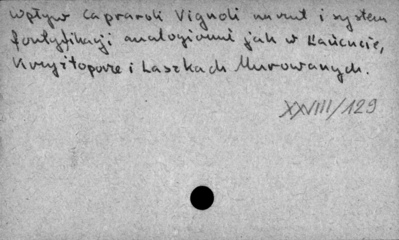 wpływ Capraroli Vignoli na rzut i system
fortyfikacji analogiczni jak w Łańcucie,
Krzyżtoporze i Laszkach Murowanych.
XXVIII/129